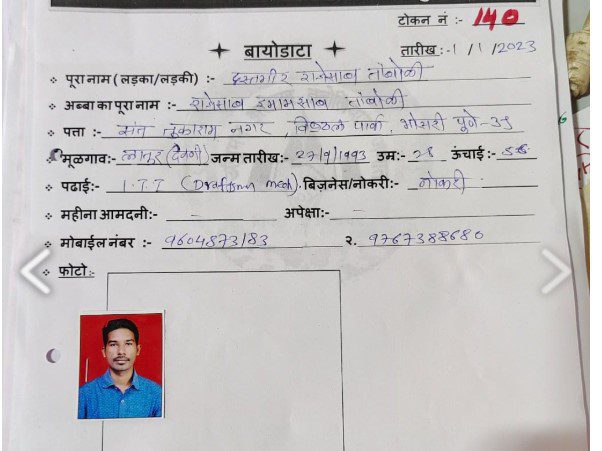 टोकन नं :- 140
बायोडाटा
तारीख :- 1 / 1 / 2023
पूरा नाम (लड़का/लड़की) :- दस्तगीर राजेसाब तांबोळी
अब्बा का पूरा नाम :- राजेसाब इमामसाब तांबोळी
पता :- संत तुकाराम नगर, विठ्ठल पार्क, भोसरी पूणे-39
मूळगाव:- लातूर (देवणी) जन्म तारीख:- 27/9/1993 उम्र:- 28 ऊंचाई:- 5.6
पढाई:- I.T.I (Draftsman mech). बिज़नेस/नोकरी:- नोकरी
महीना आमदनी:- - अपेक्षा:- -
मोबाईल नंबर :- 9604873183 २. 9767388680
फोटो:-